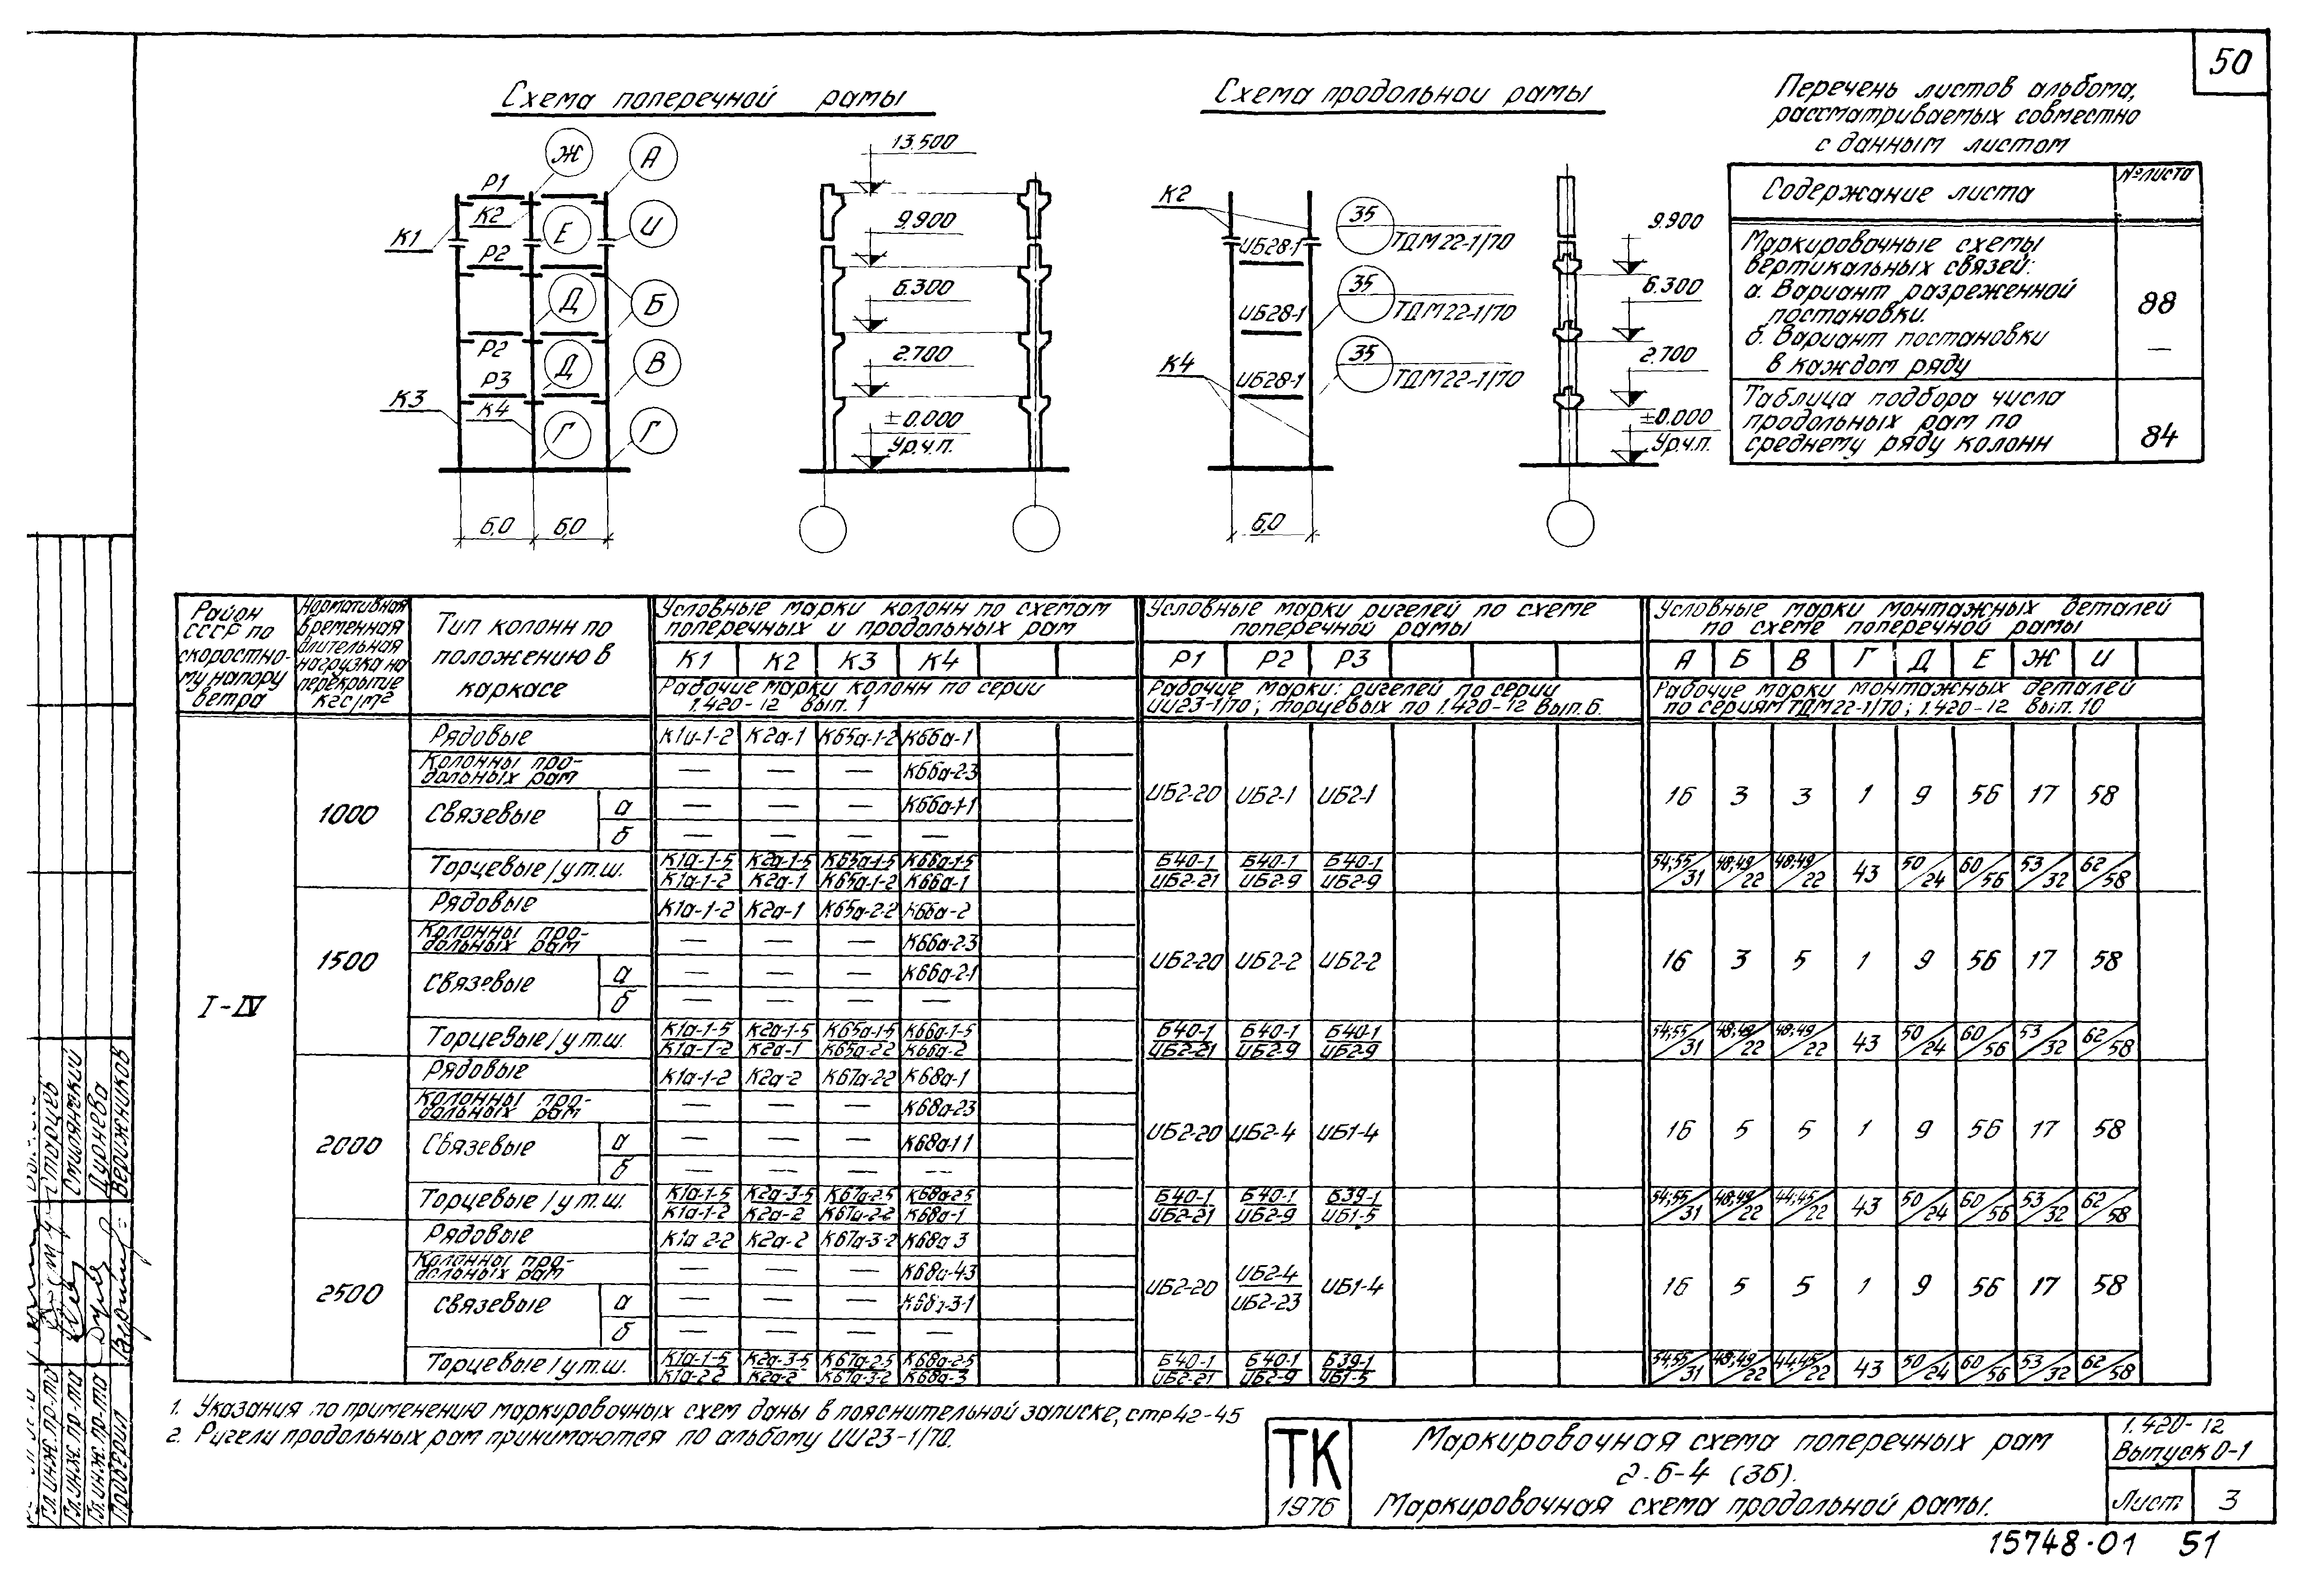 50
Схема поперечной рамы
Схема продольной рамы
Перечень листов альбома,
рассматриваемых совместно
с данным листом
Содержание листа
№ листа
Маркировочные схемы
вертикальных связей:
а. Вариант разреженной
постановки.
88
б. Вариант постановки
в каждом ряду
—
Таблица подбора числа
продольных рам по
среднему ряду колонн
84
Ж А
Р1
К2
К1
Е И
Р2
Д Б
Р2
Д В
Р3
К3 К4
Г Г
6,0 6,0
13.500
9.900
6.300
2.700
±0.000
Ур.ч.п.
К2
ИБ28-1
35
ТДМ22-1/70
ИБ28-1
35
ТДМ22-1/70
К4
ИБ28-1
35
ТДМ22-1/70
6,0
9.900
6.300
2.700
±0.000
Ур.ч.п.
Район
СССР по
скоростно-
му напору
ветра
Нормативная
временная
длительная
нагрузка на
перекрытие
кгс/м²
Тип колонн по
положению в
каркасе
Условные марки колонн по схемам
поперечных и продольных рам
К1 К2 К3 К4
Рабочие марки колонн по серии
1.420-12 вып. 1
Условные марки ригелей по схеме
поперечной рамы
Р1 Р2 Р3
Рабочие марки: ригелей по серии
ИИ23-1/70; торцевых по 1.420-12 вып. 6.
Условные марки монтажных деталей
по схеме поперечной рамы
А Б В Г Д Е Ж И
Рабочие марки монтажных деталей
по сериям ТДМ22-1/70; 1.420-12 вып. 10
I-IV
1000
Рядовые К1а-1-2 К2а-1 К65а-1-2 К66а-1
Колонны про-
дольных рам — — — К66а-2-3
Связевые а — — — К66а-1-1
б — — — —
ИБ2-20 ИБ2-1 ИБ2-1 16 3 3 1 9 56 17 58
Торцевые/у т.ш. К1а-1-5/К1а-1-2 К2а-1-5/К2а-1 К65а-1-5/К65а-1-2 К66а-1-5/К66а-1 Б40-1/ИБ2-21 Б40-1/ИБ2-9 Б40-1/ИБ2-9 54;55/31 48;49/22 48;49/22 43 50/24 60/56 53/32 62/58
1500
Рядовые К1а-1-2 К2а-1 К65а-2-2 К66а-2
Колонны про-
дольных рам — — — К66а-2-3
Связевые а — — — К66а-2-1
б — — — —
ИБ2-20 ИБ2-2 ИБ2-2 16 3 5 1 9 56 17 58
Торцевые/у т.ш. К1а-1-5/К1а-1-2 К2а-1-5/К2а-1 К65а-1-5/К65а-2-2 К66а-1-5/К66а-2 Б40-1/ИБ2-21 Б40-1/ИБ2-9 Б40-1/ИБ2-9 54;55/31 48;49/22 48;49/22 43 50/24 60/56 53/32 62/58
2000
Рядовые К1а-1-2 К2а-2 К67а-2-2 К68а-1
Колонны про-
дольных рам — — — К68а-2-3
Связевые а — — — К68а-1-1
б — — — —
ИБ2-20 ИБ2-4 ИБ1-4 16 5 5 1 9 56 17 58
Торцевые/у т.ш. К1а-1-5/К1а-1-2 К2а-3-5/К2а-2 К67а-2-5/К67а-2-2 К68а-2-5/К68а-1 Б40-1/ИБ2-21 Б40-1/ИБ2-9 Б39-1/ИБ1-5 54;55/31 48;49/22 44;45/22 43 50/24 60/56 53/32 62/58
2500
Рядовые К1а 2-2 К2а-2 К67а-3-2 К68а 3
Колонны про-
дольных рам — — — К68а-4-3
Связевые а — — — К68а-3-1
б — — — —
ИБ2-20 ИБ2-4/ИБ2-23 ИБ1-4 16 5 5 1 9 56 17 58
Торцевые/у т.ш. К1а-1-5/К1а-2-2 К2а-3-5/К2а-2 К67а-2-5/К67а-3-2 К68а-2-5/К68а-3 Б40-1/ИБ2-21 Б40-1/ИБ2-9 Б39-1/ИБ1-5 54;55/31 48;49/22 44;45/22 43 50/24 60/56 53/32 62/58
1. Указания по применению маркировочных схем даны в пояснительной записке, стр 42-45
2. Ригели продольных рам принимаются по альбому ИИ23-1/70.
ТК
1976
Маркировочная схема поперечных рам
2-6-4 (36).
Маркировочная схема продольной рамы.
1.420-12
Выпуск 0-1
Лист 3
15748-01 51
Гл.инж.пр-та Старцев
Гл.инж.пр-та Смилянский
Гл.инж.пр-та Дурнева
Проверил Вережников